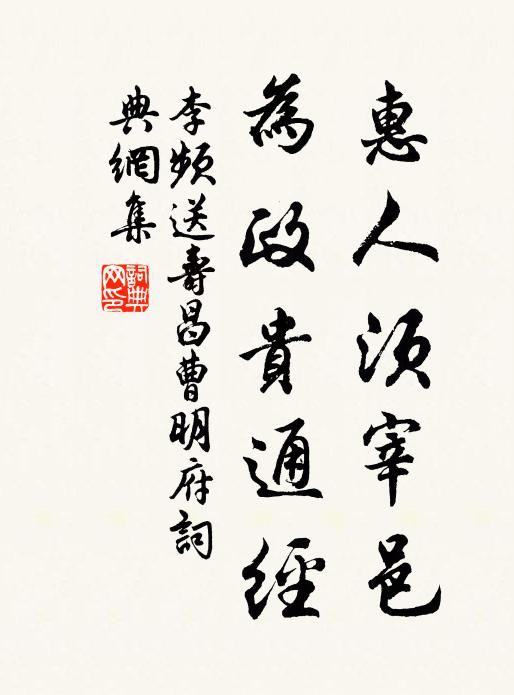 惠人須宰邑
為政貴通經
李頻送壽昌曹明府詞
典網集
詞典
网印